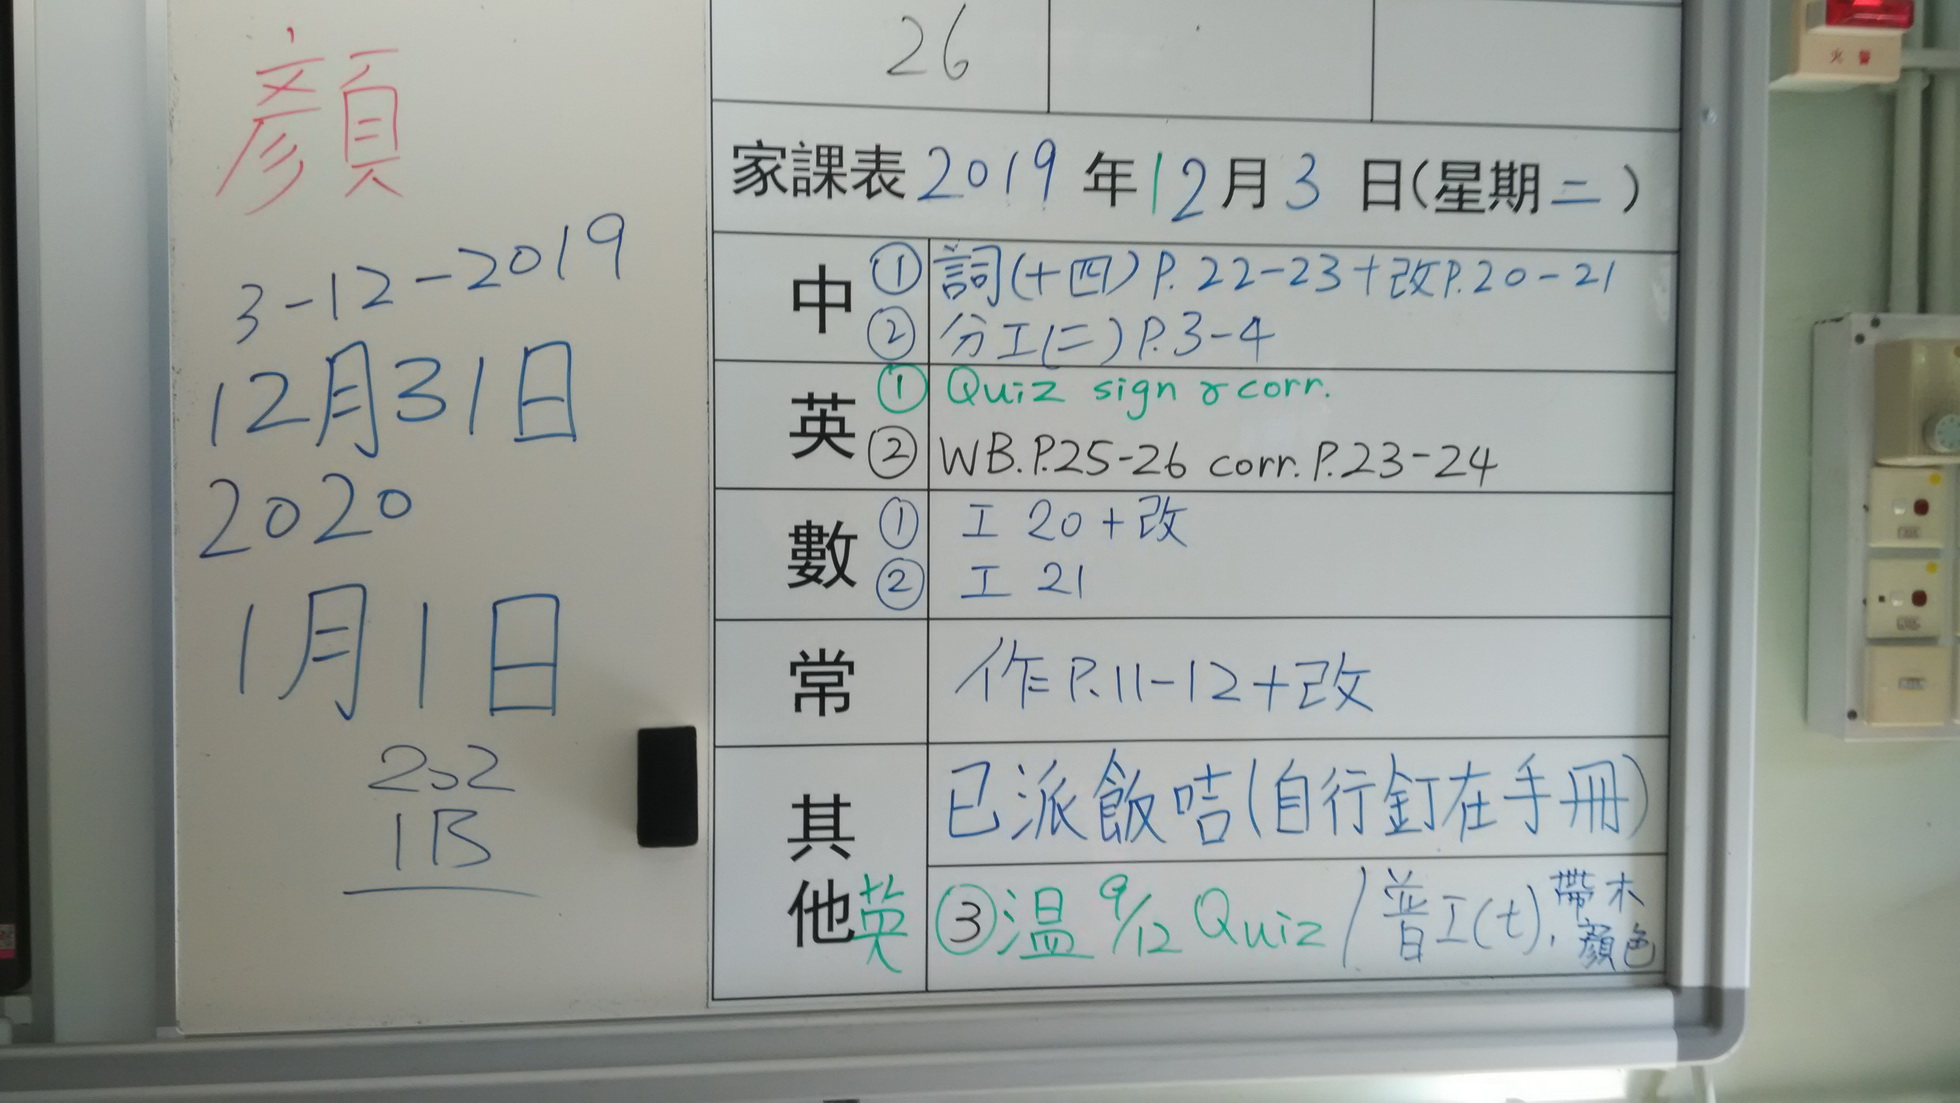 顏
3-12-2019
12月31日
2020
1月1日
1B
26
家課表2019年12月3日(星期二)
中
① 詞(十四) P.22-23+改P.20-21
② 分工(二) P.3-4
英
① Quiz sign & corr.
② WB.P.25-26 corr.P.23-24
數
① 工 20+改
② 工 21
常
作P.11-12+改
其他
已派飯咭(自行釘在手冊)
英 ③溫 9/12 Quiz / 普工(t), 帶木顏色
火警